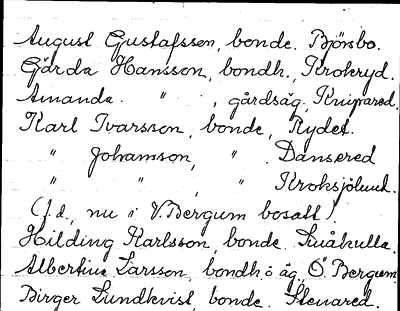 August Gustafsson, bonde. Björsbo.
Gärda Hansson, bondh., Krokryd.
Amanda. " , gårdsäg., Knipared,
Karl Ivarsson, bonde, Rydet.
" Johansson, " . Dansered
" " , " Kroksjölund.
(f.d., nu i V. Bergum bosatt).
Hilding Karlsson, bonde. Småkulla.
Albertina Larsson, bondh. o äg. Ö. Bergum
Birger Lundkvist, bonde. Stenared.